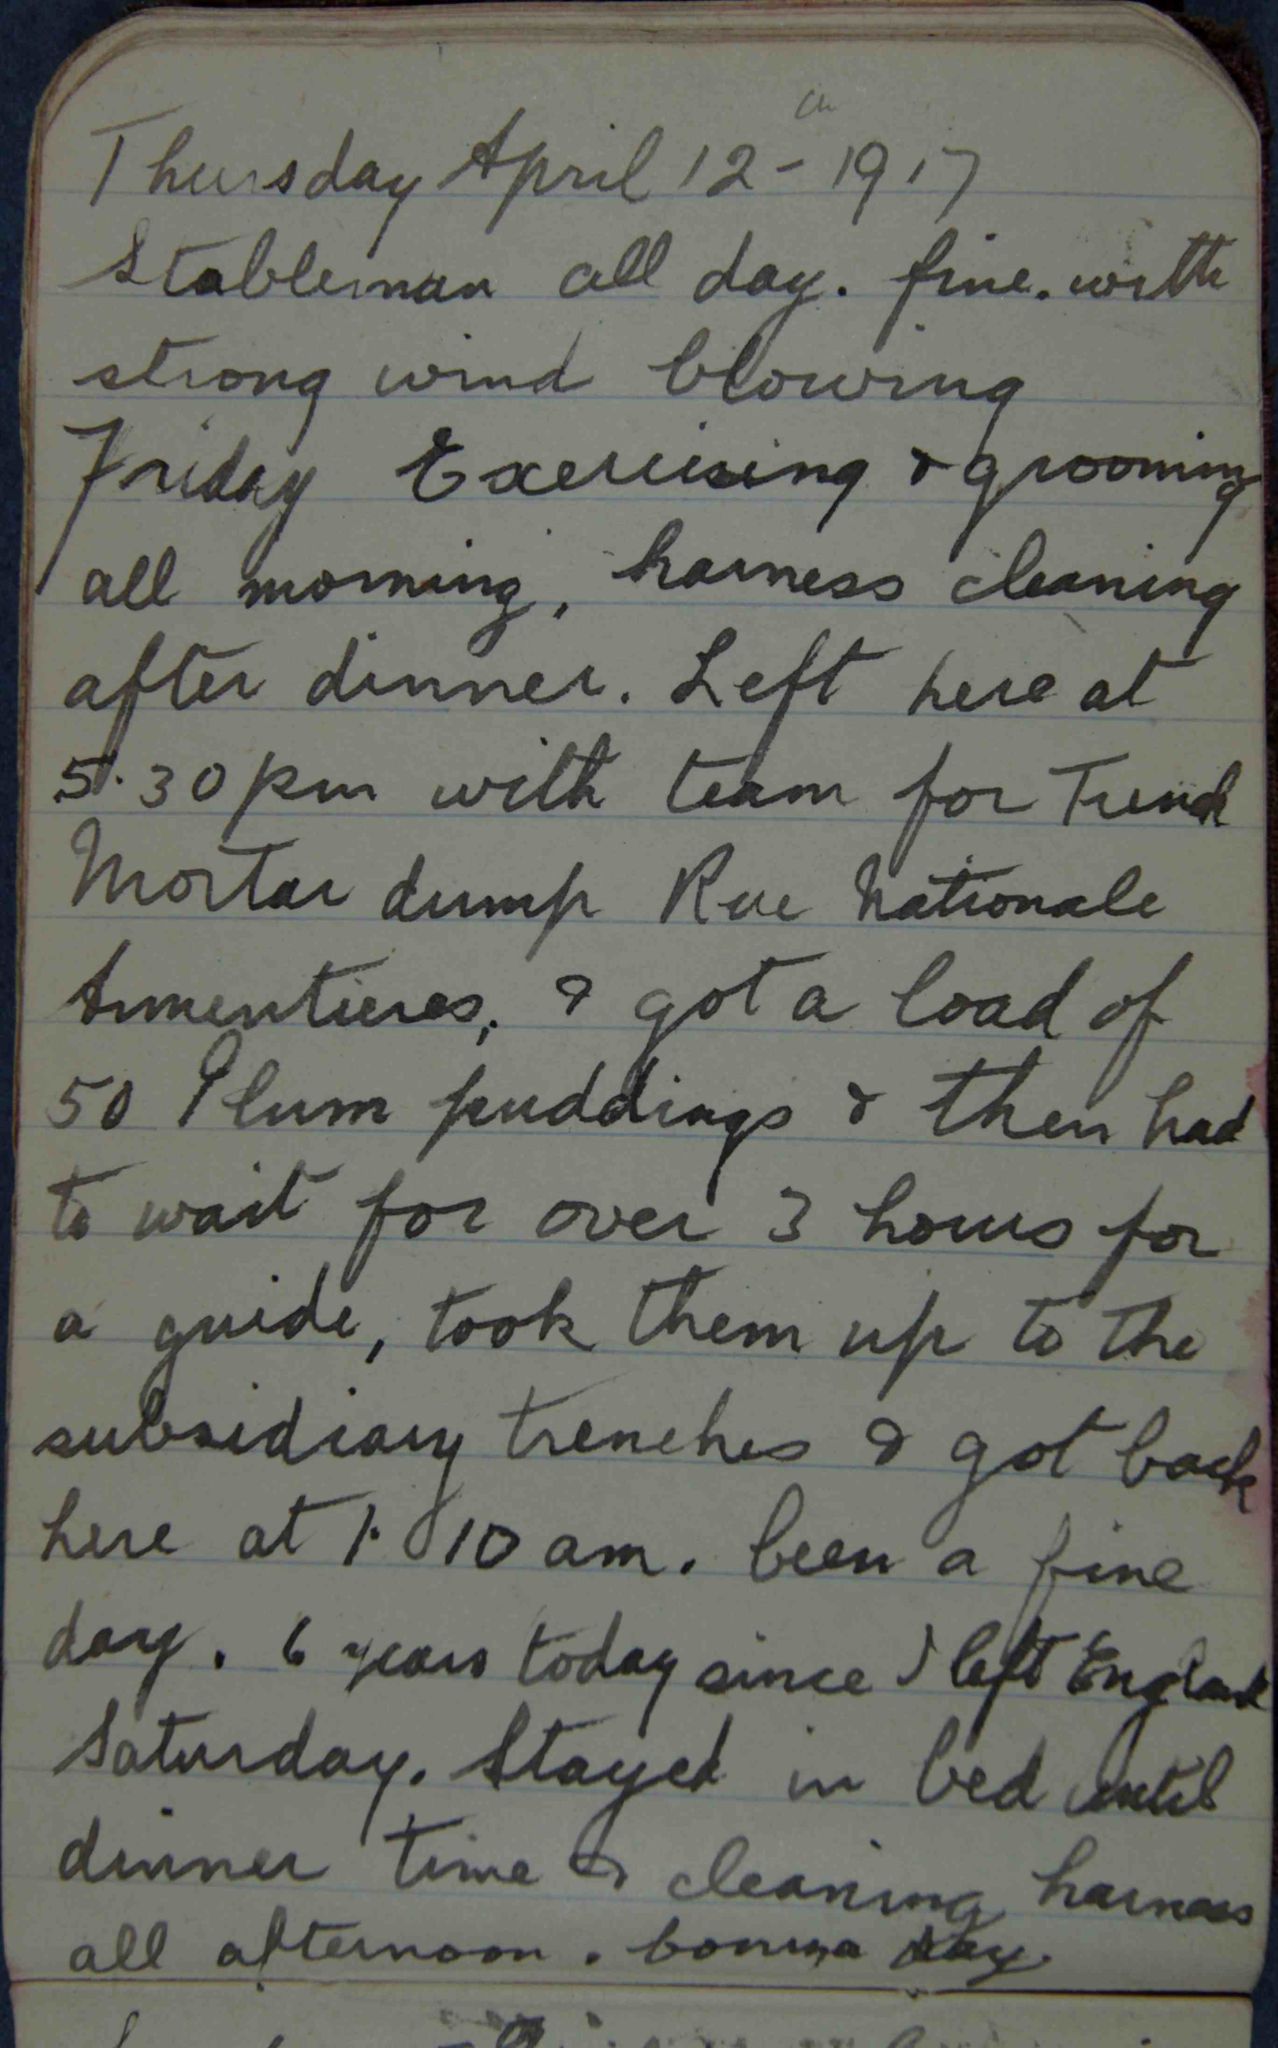 Thursday April 12th - 1917
Stableman all day. fine. with
strong wind blowing
Friday Exercising & grooming
all morning, harness cleaning
after dinner. Left here at
5.30 pm with team for Trench
Mortar dump Rue Nationale
Armentieres, & got a load of
50 Plum puddings & then had
to wait for over 3 hours for
a guide, took them up to the
subsidiary trenches & got back
here at 1.10 am. been a fine
day. 6 years today since I left England
Saturday. Stayed in bed until
dinner time & cleaning harness
all afternoon. bonza day.